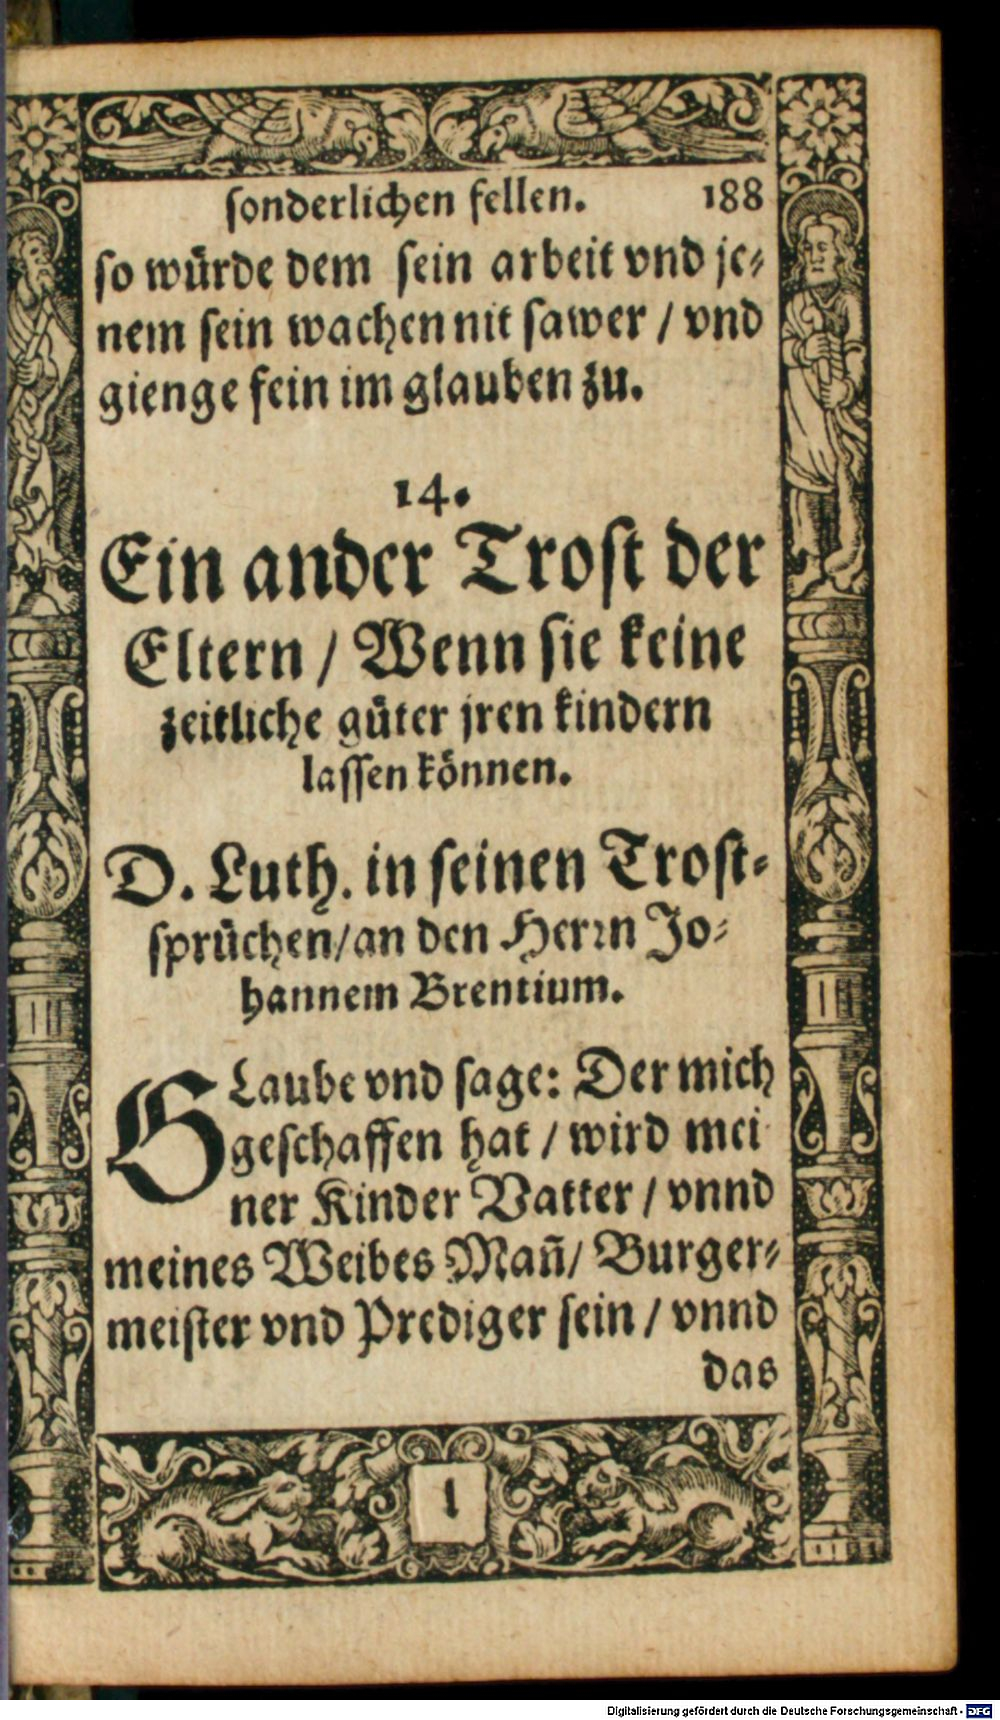 sonderlichen fellen. 188
so würde dem sein arbeit vnd je⸗
nem sein wachen nit sawer / vnd
gienge fein im glauben zu.
14.
Ein ander Trost der
Eltern / Wenn sie keine
zeitliche güter jren kindern
lassen können.
D. Luth. in seinen Trost⸗
sprüchen / an den Herrn Jo⸗
hannem Brentium.
GLaube vnd sage: Der mich
geschaffen hat / wird mei
ner Kinder Vatter / vnnd
meines Weibes Mañ / Burger⸗
meister vnd Prediger sein / vnnd
das
Digitalisierung gefördert durch die Deutsche Forschungsgemeinschaft - DFG